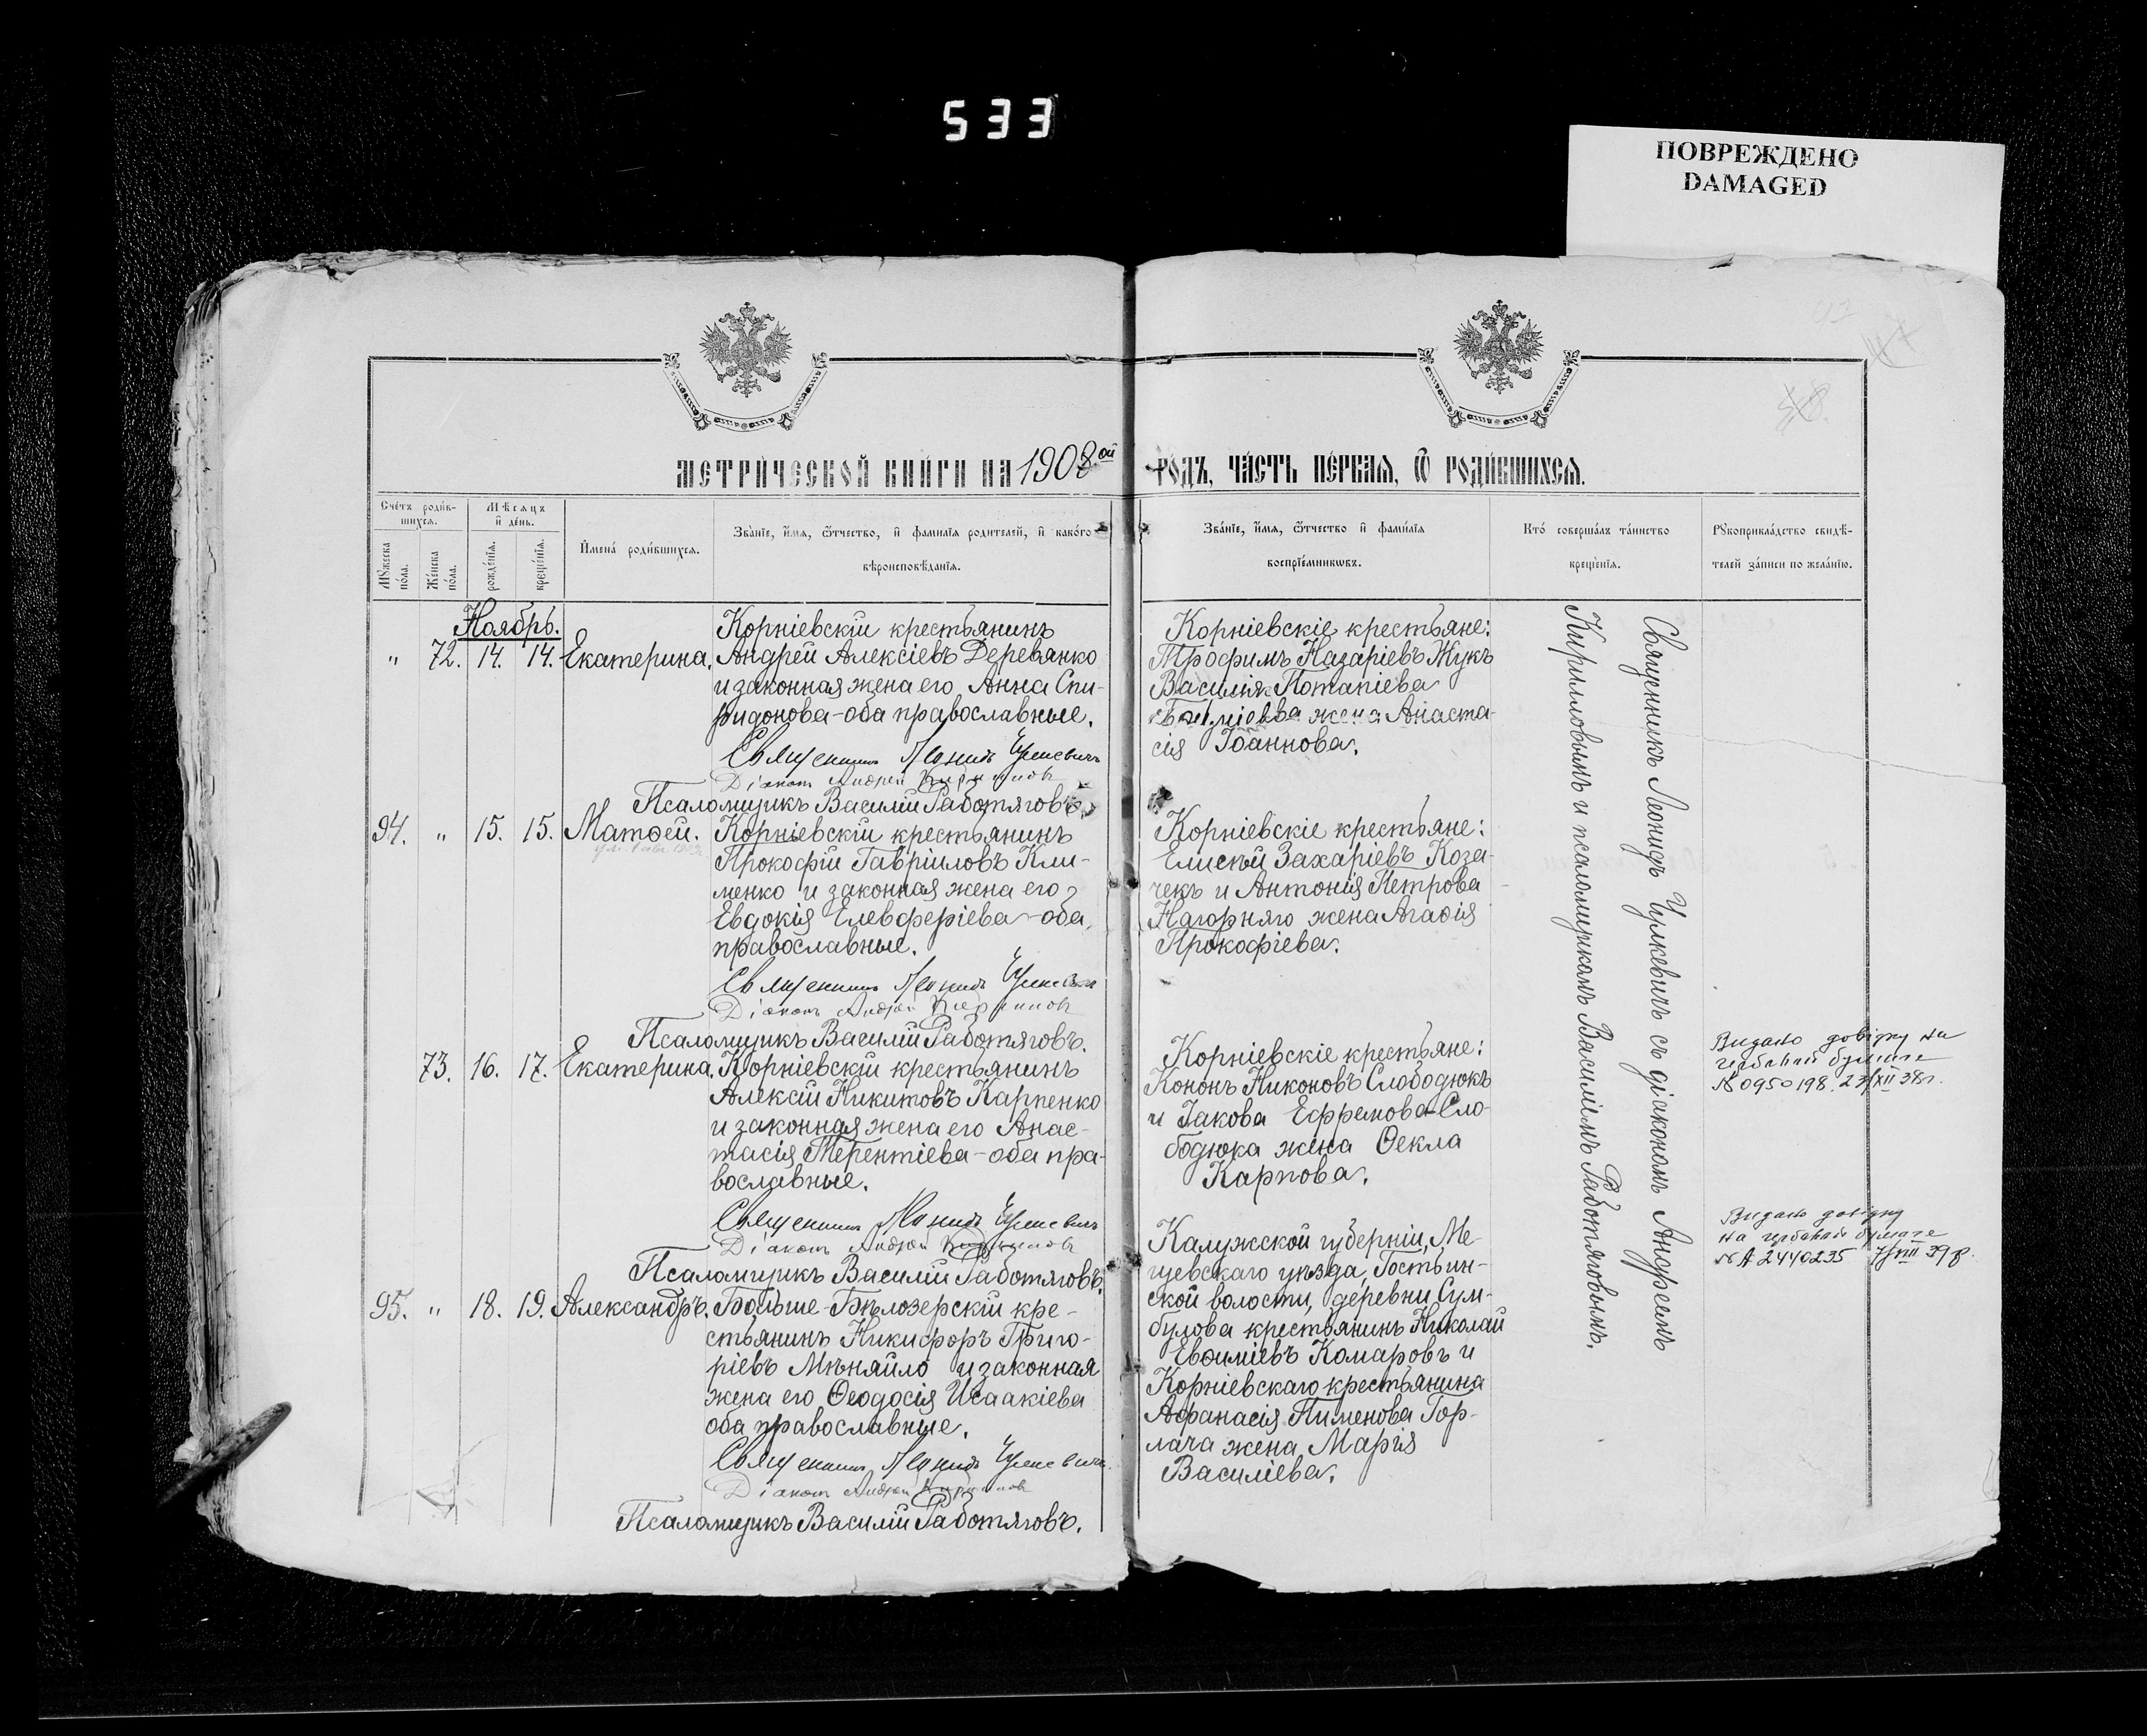 533
ПОВРЕЖДЕНО
DAMAGED
МЕТРИЧЕСКОЙ КНИГИ НА 1908ой ГОДЪ, ЧАСТЬ ПЕРВАЯ, Ѿ РОДИВШИХСЯ.
Счетъ родив-
шихся.
Мужеска
пола.
Женска
пола.
Мѣсяцъ
и день.
рожденія.
крещенія.
Имена родившихся.
Званіе, имя, отчество, и фамилія родителей, и какого
вѣроисповѣданія.
Званіе, имя, отчество и фамилія
воспріемниковъ.
Кто совершалъ таинство
крещенія.
Рукоприкладство свидѣ-
телей записи по желанію.
Ноябрь.
" 72. 14. 14. Екатерина.
Корніевскій крестьянинъ
Андрей Алексіевъ Деревянко
и законная жена его Анна Спи-
ридонова - оба православные.
Священникъ Леонидъ Цулкевичъ
Діаконъ Андрей Кирилловъ
Псаломщикъ Василій Работяговъ.
Корніевскіе крестьяне:
Трофимъ Назаріевъ Жукъ
Василія Потапіева
жена Анаста-
сія Іоаннова.
94. " 15. 15. Матѳей.
Корніевскій крестьянинъ
Прокофій Гавріиловъ Кли-
менко и законная жена его
Евдокія Елевферіева - оба
православные.
Священникъ Леонидъ Цулкевичъ
Діаконъ Андрей Кирилловъ
Псаломщикъ Василій Работяговъ.
Корніевскіе крестьяне:
Елисей Захаріевъ Коза-
чекъ и Антонія Петрова
Нагорняго жена Агаѳія
Прокофіева.
73. 16. 17. Екатерина.
Корніевскій крестьянинъ
Алексій Никитовъ Карпенко
и законная жена его Анас-
тасія Терентіева - оба пра-
вославные.
Священникъ Леонидъ Цулкевичъ
Діаконъ Андрей Кирилловъ
Псаломщикъ Василій Работяговъ.
Корніевскіе крестьяне:
Кононъ Никоновъ Слободюкъ
и Іакова Ефремова Сло-
бодюка жена Ѳекла
Карпова.
Видано довідку на
гербовій бумаге
№ 0950198. 23/XII 38г.
95. " 18. 19. Александръ.
Больше-Бѣлозерскій кре-
стьянинъ Никифоръ Григо-
ріевъ Мѣняйло и законная
жена его Ѳеодосія Исаакіева
оба православные.
Священникъ Леонидъ Цулкевичъ
Діаконъ Андрей Кирилловъ
Псаломщикъ Василій Работяговъ.
Калужской губерніи, Ме-
щевскаго уѣзда, Гостьин-
ской волости, деревни Сум-
булова крестьянинъ Николай
Евѳиміевъ Комаровъ и
Корніевскаго крестьянина
Афанасія Пименова Гор-
лача жена Марія
Василіева.
Видано довідку
на гербовій бумаге
№ А 2440235 7/VIII 39р.
Священникъ Леонидъ Цулкевичъ съ діакономъ Андреемъ
Кирилловымъ и псаломщикомъ Василіемъ Работяговымъ.